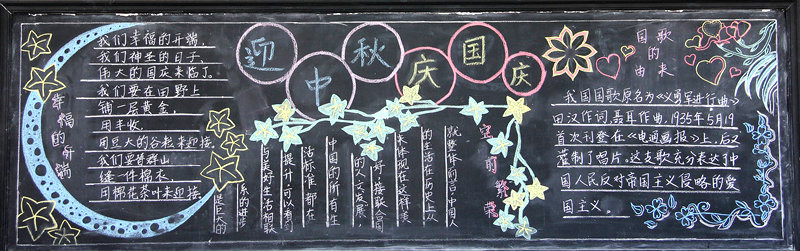 幸福的开端
我们幸福的开端,
我们神圣的日子,
伟大的国庆来临了。
我们要在田野上
铺一层黄金,
用丰收,
用豆大的谷粒来迎接。
我们要替群山
缝一件棉衣,
用棉花茶叶来迎接。
迎中秋庆国庆
空前繁荣
就整体而言,中国人
的生活在历史上从
未体现在这样美
好,接联合国
的人文发展,
中国的所有生
活标准都在
提升,可以看到
与美好生活相联
系的进步
是巨大的
国歌的由来
我国国歌原名为《义勇军进行曲》
田汉作词,聂耳作曲,1935年5月19
首次刊登在《电通画报》上,后又
灌制了唱片。这支歌充分表达了中
国人民反对帝国主义侵略的爱
国主义。